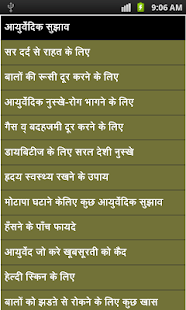 9:06 AM
आयुर्वेदिक सुझाव
सर दर्द से राहत के लिए
बालों की रूसी दूर करने के लिए
आयुर्वेदिक नुस्खे-रोग भागने के लिए
गैस व् बदहजमी दूर करने के लिए
डायबिटीज के लिए सरल देशी नुस्खे
ह्रदय स्वस्थ्य रखने के उपाय
मोटापा घटाने केलिए कुछ आयुर्वेदिक सुझाव
हँसने के पाँच फायदे
आयुर्वेद जो करे खूबसूरती को कैद
हेल्दी स्किन के लिए
बालों को झडऩे से रोकने के लिए कुछ खास